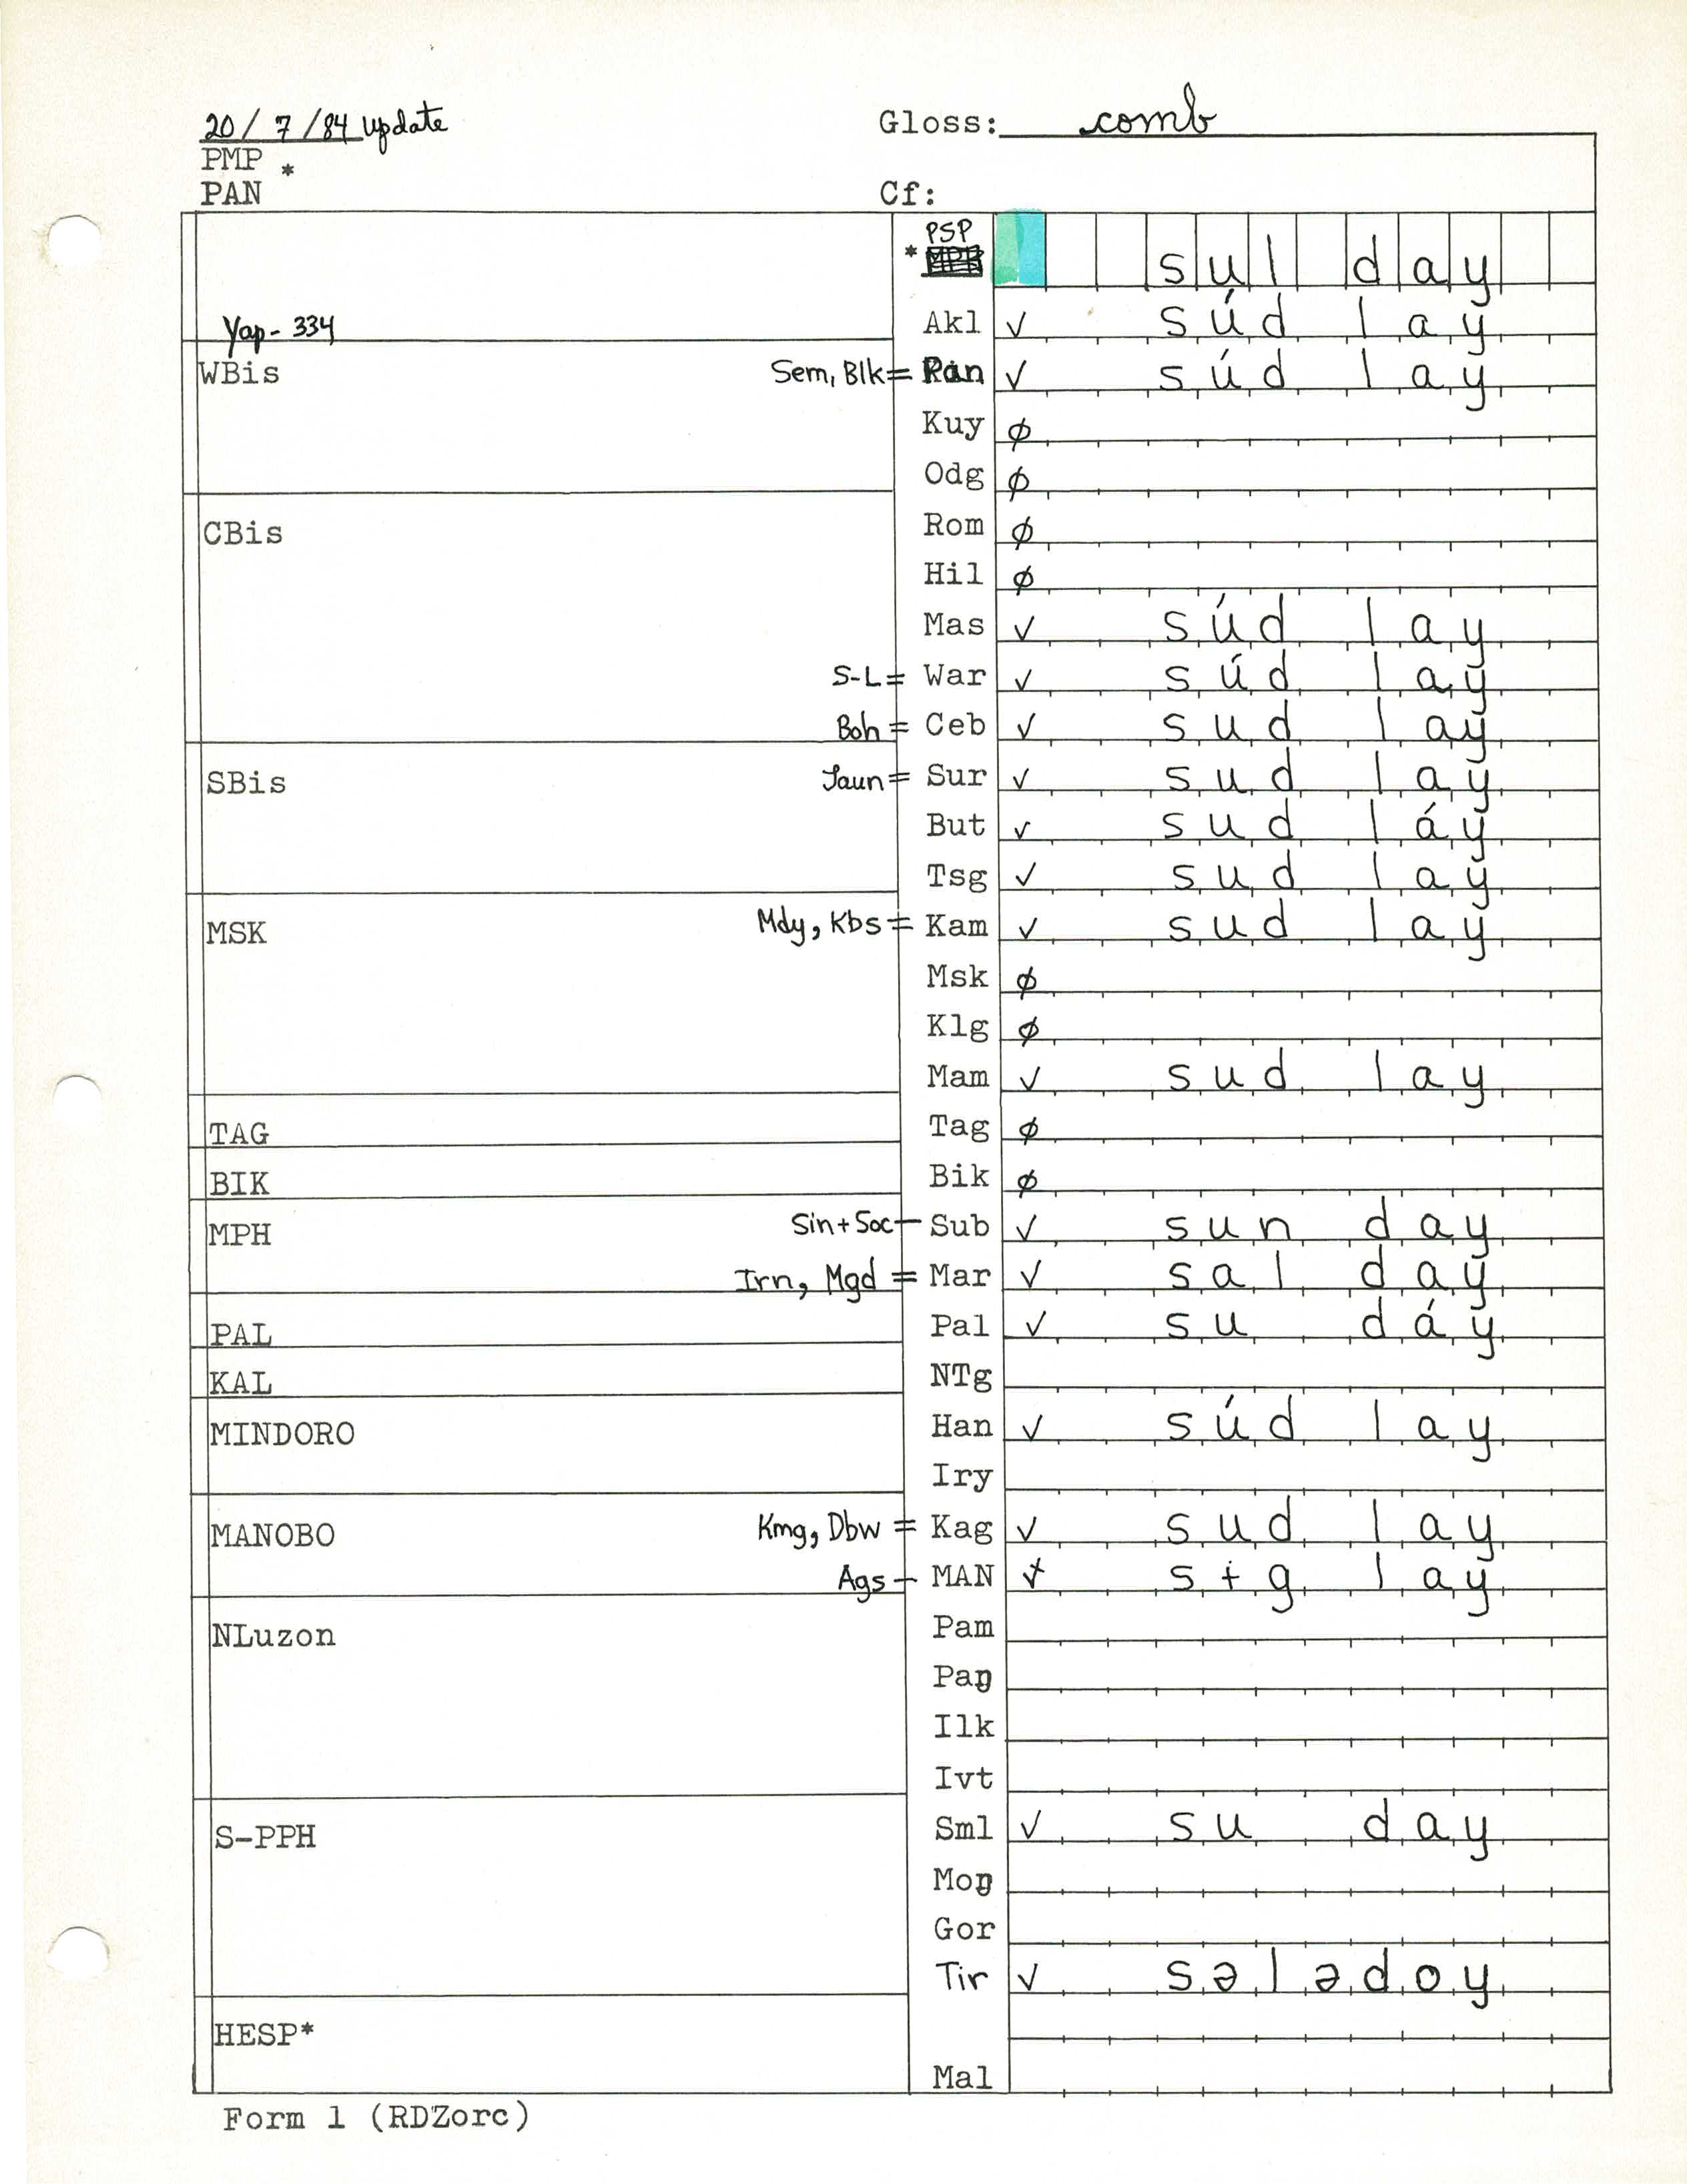 20/7/84 update
Gloss: comb
PMP *
PAN
Cf:
* PSP sul day
Yap- 334
Akl √ súd lay
WBis
Sem, Blk = Pan √ súd lay
Kuy ∅
Odg ∅
CBis
Rom ∅
Hil ∅
Mas √ súd lay
S-L = War √ súd lay
Boh = Ceb √ sud lay
SBis
Jaun = Sur √ sud lay
But √ sud láy
Tsg √ sud lay
MSK
Mdy, Kbs = Kam √ sud lay
Msk ∅
Klg ∅
Mam √ sud lay
TAG
Tag ∅
BIK
Bik ∅
MPH
Sin + Soc - Sub √ sun day
Irn, Mgd = Mar √ sal day
PAL
Pal √ su dáy
KAL
NTg
MINDORO
Han √ súd lay
Iry
MANOBO
Kmg, Dbw = Kag √ sud lay
Ags - MAN √ sɨg lay
NLuzon
Pam
Paŋ
Ilk
Ivt
S-PPH
Sml √ su day
Moŋ
Gor
Tir √ sələdoy
HESP*
Mal
Form 1 (RDZorc)